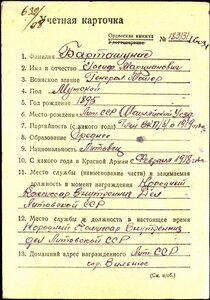 Учетная карточка
Орденская книжка
1. Фамилия Барташунас
2. Имя и отчество Иосиф Марцианович
3. Воинское звание Генерал Майор
4. Пол Мужской
5. Год рождения 1895
6. Место рождения Лит. ССР Шауляйский уезд
7. Партийность (с какого года) Член ВКП/б/ с 1919 года
8. Образование Среднее
9. Национальность Литовец
10. С какого года в Красной Армии с Февраля 1918 года
11. Место службы (наименование части) и занимаемая
должность в момент награждения Народный
Комиссар Внутренних Дел
Литовской ССР
12. Место службы и должность в настоящее время
Народный Комиссар Внутренних
дел Литовской ССР
13. Домашний адрес награжденного Лит. ССР
гор. Вильнюс
(См. н/об.)